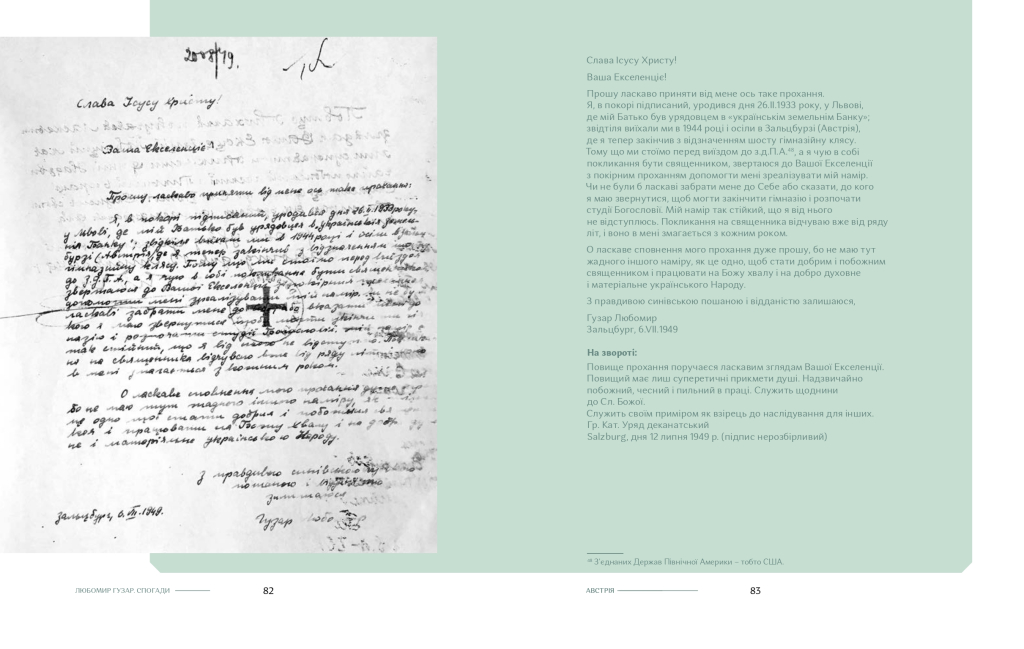 2008/49.
Слава Ісусу Христу!
Ваша Екселенціє!
Прошу, ласкаво приняти від мене ось таке прохання:
Я, в покорі підписаний, уродився дня 26.II.1933 року,
у Львові, де мій Батько був урядовцем в „українськім земель-
нім Банку"; звідтіля виїхали ми в 1944 році і осіли в Зальц-
бурзі (Австрія), де я тепер закінчив з відзначенням шосту
гімназійну клясу. Тому що ми стоїмо перед виїздом
до З.Д.П.А., а я чую в собі покликання бути священиком
звертаюся до Вашої Екселенції з покірним проханням
допомогти мені зреалізувати мій намір. Чи не були б
ласкаві забрати мене до Себе або сказати, до
кого я маю звернутися, щоб могти закінчити гім-
назію і розпочати студії Богословії. Мій намір є
так стійкий, що я від нього не відступлю. Поклика-
ння на священика відчуваю вже від ряду літ,
в мені змагається з кожним роком.
О ласкаве сповнення мого прохання дуже
бо не маю тут жадного іншого наміру, як
це одно, щоб стати добрим і побожним свя-
і працювати на Божу хвалу і на добро ду
не і матеріяльне українського Народу.
З правдивою синівською
пошаною і відданістю
залишаюся
Зальцбург, 6.VII.1949.
Гузар Любо
ЛЮБОМИР ГУЗАР. СПОГАДИ
82
Слава Ісусу Христу!
Ваша Екселенціє!
Прошу ласкаво приняти від мене ось таке прохання.
Я, в покорі підписаний, уродився дня 26.II.1933 року, у Львові,
де мій Батько був урядовцем в «українськім земельнім Банку»;
звідтіля виїхали ми в 1944 році і осіли в Зальцбурзі (Австрія),
де я тепер закінчив з відзначенням шосту гімназійну клясу.
Тому що ми стоїмо перед виїздом до з.д.П.А.⁴⁸, а я чую в собі
покликання бути священником, звертаюся до Вашої Екселенції
з покірним проханням допомогти мені зреалізувати мій намір.
Чи не були б ласкаві забрати мене до Себе або сказати, до кого
я маю звернутися, щоб могти закінчити гімназію і розпочати
студії Богословії. Мій намір так стійкий, що я від нього
не відступлюся. Покликання на священника відчуваю вже від ряду
літ, і воно в мені змагається з кожним роком.
О ласкаве сповнення мого прохання дуже прошу, бо не маю тут
жадного іншого наміру, як це одно, щоб стати добрим і побожним
священником і працювати на Божу хвалу і на добро духовне
і матеріальне українського Народу.
З правдивою синівською пошаною і відданістю залишаюся,
Гузар Любомир
Зальцбург, 6.VII.1949
На звороті:
Повище прохання поручаєся ласкавим зглядам Вашої Екселенції.
Повищий має лиш суперетичні прикмети душі. Надзвичайно
побожний, чесний і пильний в праці. Служить щоднини
до Сл. Божої.
Служить своїм приміром як взірець до наслідування для інших.
Гр. Кат. Уряд деканатський
Salzburg, дня 12 липня 1949 р. (підпис нерозбірливий)
⁴⁸ З'єднаних Держав Північної Америки – тобто США.
АВСТРІЯ
83